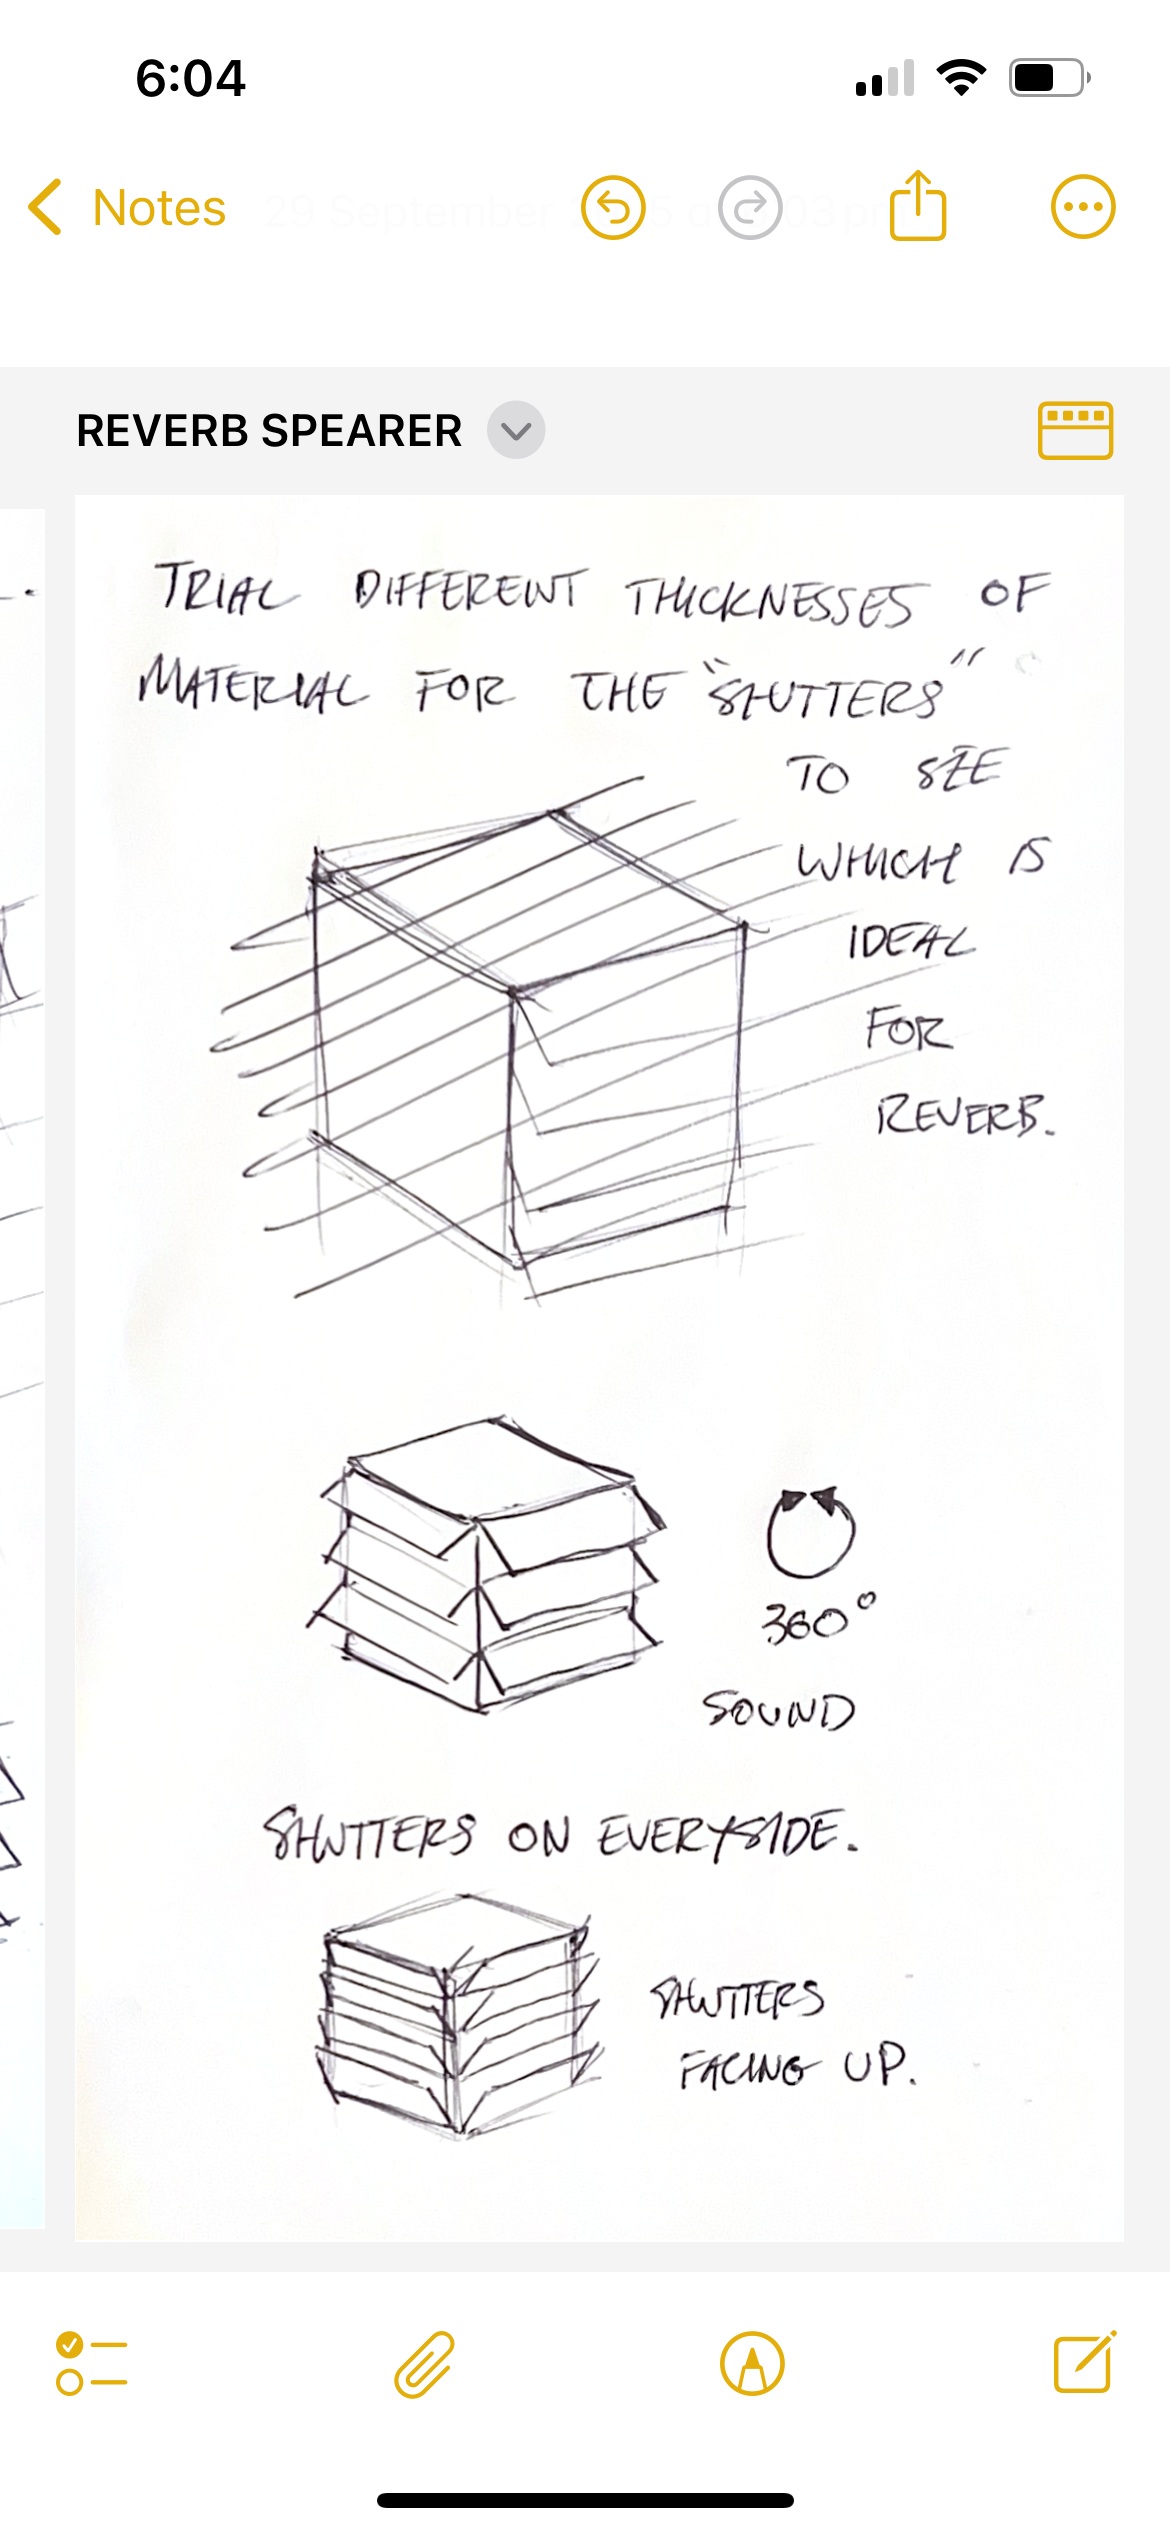 6:04
Notes
29 September 2025 at 6:03 pm
REVERB SPEARER
TRIAL DIFFERENT THICKNESSES OF
MATERIAL FOR THE "SHUTTERS"
TO SEE
WHICH IS
IDEAL
FOR
REVERB.
360°
SOUND
SHUTTERS ON EVERYSIDE.
SHUTTERS
FACING UP.